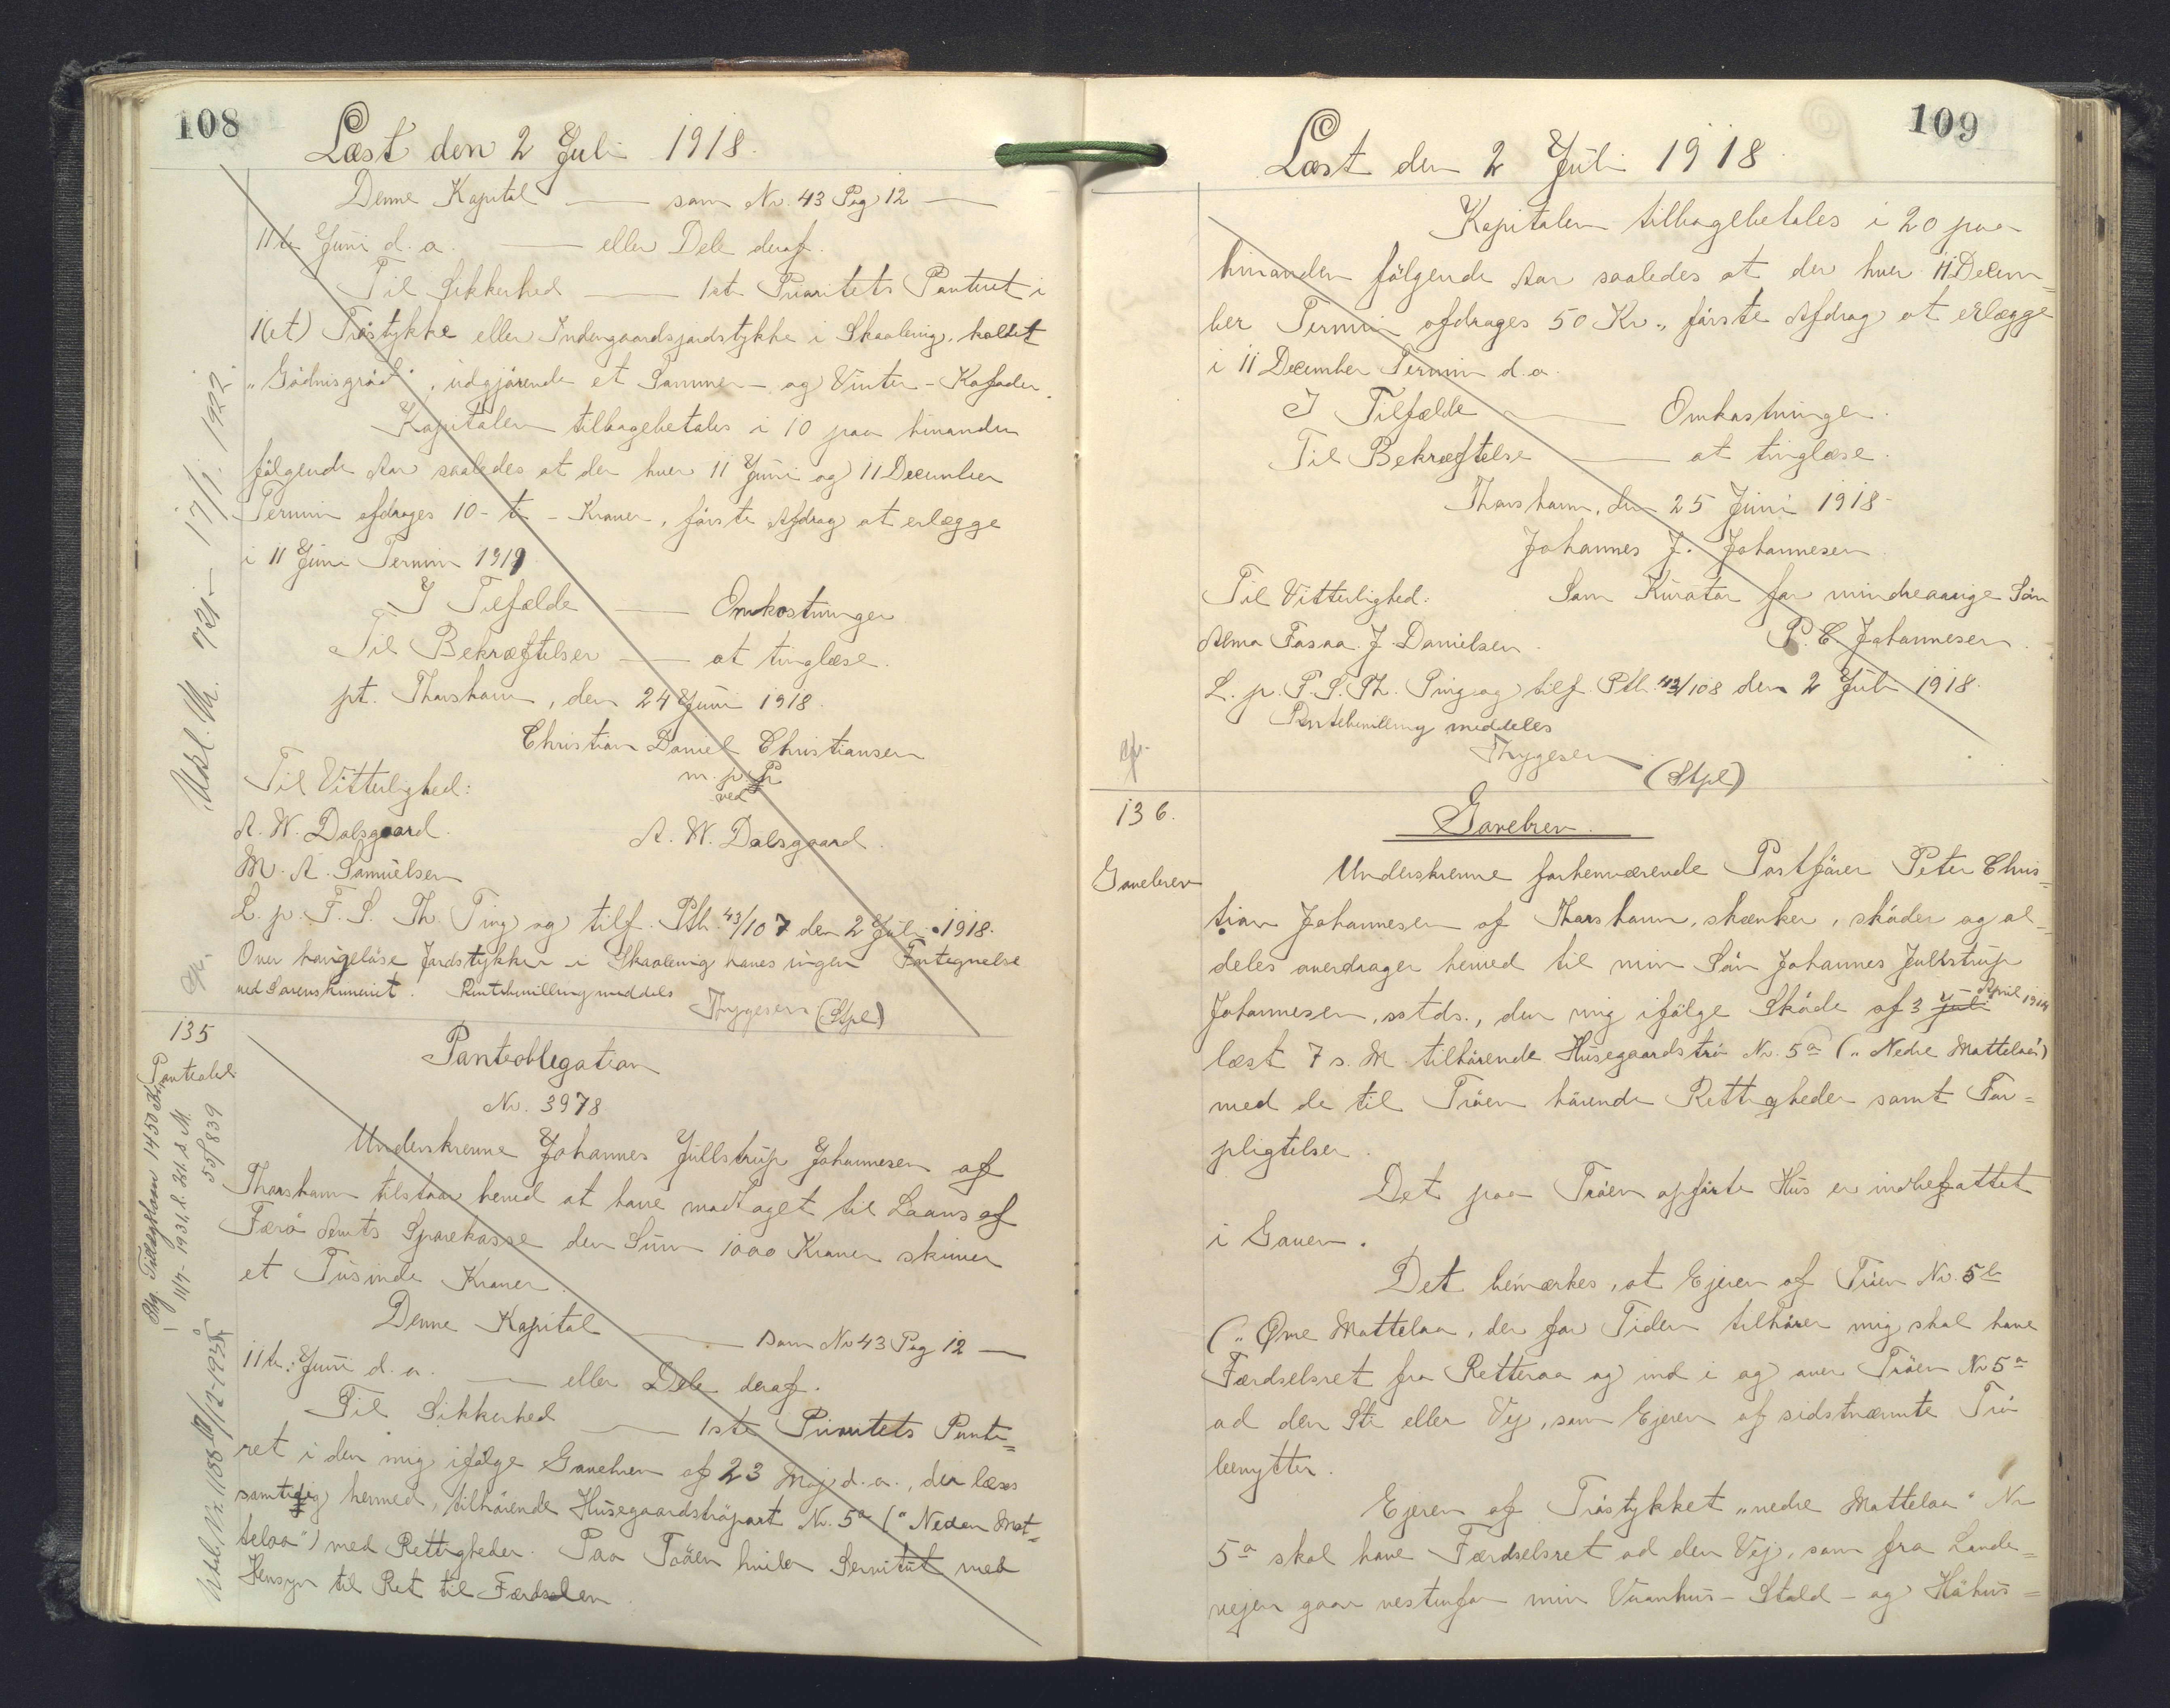 108
Læst den 2 Juli 1918.
Denne Kapital —— som Nr. 43 Pag 12 ——
11te Juni d. a. —— eller Dele deraf.
Til Sikkerhed —— 1ste Prioritets Panteret i
1(et) Tröstykke eller Indengaardsjordstykke i Skaalevig, kaldet
udgjörende et Sommer- og Vinter-Kofoder.
Kapitalen tilbagebetales i 10 paa hinanden
fölgende Aar saaledes at der hver 11 Juni og 11 December
Termin afdrages 10 - ti - Kroner, förste Afdrag at erlægge
i 11 Juni Termin 1919
I Tilfælde —— Omkostninger
Til Bekræftelse —— at tinglæse.
pt. Thorshavn, den 24 Juni 1918.
Christian Daniel Christiansen
m. p. P.
ved
Til Vitterlighed:
A. W. Dalsgaard.
A. W. Dalsgaard.
M. A. Samuelsen
L. p. F. S. Th. Ting og tilf. Ptb. 43/107 den 2 Juli 1918.
Over haugelöse Jordstykker i Skaalevig haves ingen Fortegnelse
ved Sorenskriveriet. Rentebevilling meddeles
Thygesen (Stpl)
Udsl. Th. 17/1. 1922.
135
Panteobl.
Ptg. Tillægslaan 1450 Kr.
11/7-1931, l. 21. s. M.
55/839
Panteobligation
Nr. 3978
Underskrevne Johannes Jullstrup Johannesen af
Thorshavn tilstaar herved at have modtaget til Laans af
Færö Amts Sparekasse den Sum 1000 Kroner skriver
et Tusinde Kroner.
Denne Kapital —— som Nr 43 Pag 12 ——
11te: Juni d. a. —— eller Dele deraf.
Til Sikkerhed —— 1ste Prioritets Pante=
ret i den mig ifölge Gavebrev af 23 Maj d. a., der læses
samtidig hermed, tilhörende Husegaardströpart Nr. 5a ("Neden Mat=
telaa") med Rettigheder. Paa Tröen hviler Servitut med
Hensyn til Ret til Færdselen.
109
Læst den 2 Juli 1918
Kapitalen tilbagebetales i 20 paa
hinanden fölgende Aar saaledes at der hver 11 Decem=
ber Termin afdrages 50 Kr., förste Afdrag at erlægge
i 11 December Termin d. a.
I Tilfælde —— Omkostninger.
Til Bekræftelse —— at tinglæse.
Thorshavn, den 25 Juni 1918
Johannes J. Johannesen
Til Vitterlighed: Som Kurator for mindreaarige Sön
J. Danielsen. P. C. Johannesen.
L. p. F. S. Th. Ting og tilf. Ptb. 43/108 den 2 Juli 1918.
Rentebevilling meddeles
Thygesen (Stpl)
136.
Gavebrev
Gavebrev.
Underskrevne forhenværende Postförer Peter Chris=
tian Johannesen af Thorshavn, skænker, sköder og al=
deles overdrager herved til min Sön Johannes Jullstrup
Johannesen, sstds., den mig ifölge Sköde af 3 Juli April 1914
læst 7 s. M. tilhörende Husegaardströ Nr. 5a ("Nedre Mattelaa")
med de til Tröen hörende Rettigheder samt For=
pligtelser.
Det paa Tröen opförte Hus er indbefattet
i Gaven.
Det bemærkes, at Ejeren af Tröen Nr. 5b
("Övre Mattelaa, der for Tiden tilhörer mig skal have
Færdselsret fra Retteraa og ind i og over Tröen Nr 5a
ad den Sti eller Vej, som Ejeren af sidstnævnte Trö
benytter.
Ejeren af Tröstykket "nedre Mattelaa" Nr
5a skal have Færdselsret ad den Vej, som fra Lande=
vejen gaar vestenfor min Vaanhus- Stald- og Höhus=